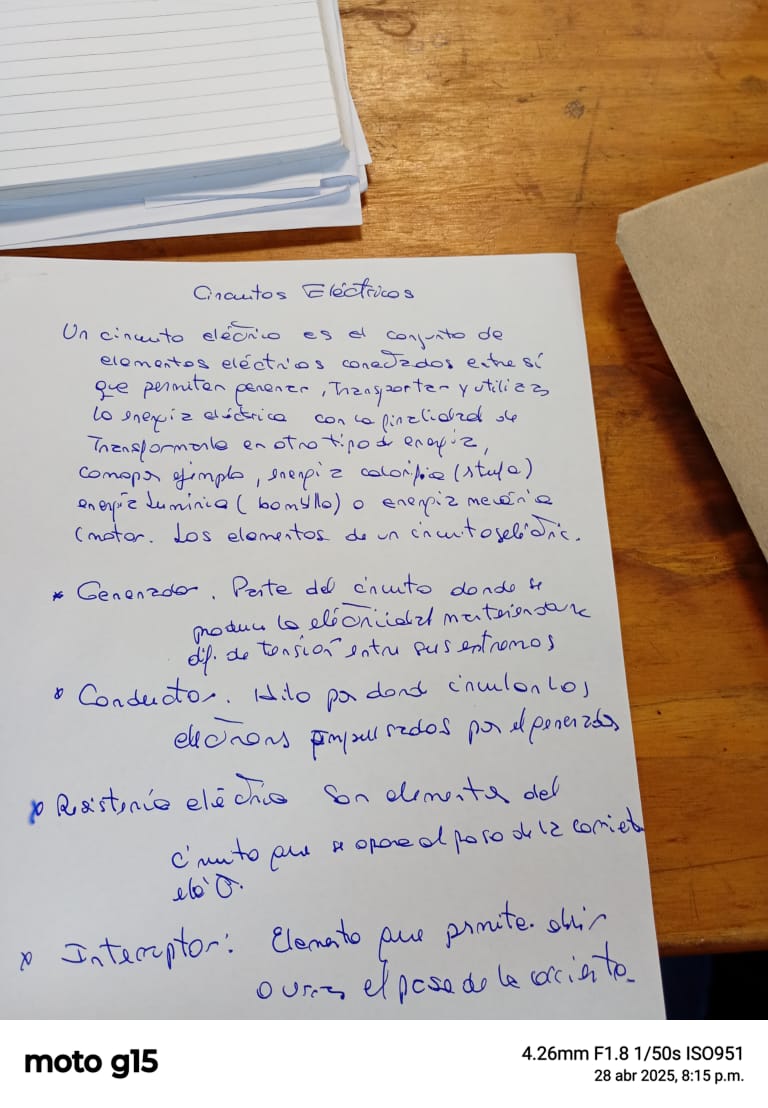 Circuitos Eléctricos
Un circuito eléctrico es el conjunto de
elementos eléctricos conectados entre sí
que permiten generar, Transportar y utilizar
la energía eléctrica con la finalidad de
Transformarla en otro tipo de energía,
como por ejemplo, energía calorífica (stufa)
energía Lumínica (bombillo) o energía mecánica
(motor. Los elementos de un circuito eléctric.
* Generador. Parte del circuito donde se
produce la electricidad manteniendo una
dif. de tensión entre sus extremos
* Conductor. Hilo por donde circulan Los
electrons impulsados por el generador
* Resistencia eléctrica Son elementos del
circuito que se opone al paso de la corriente
eléct.
* Interruptor: Elemento que permite abrir
o el paso de la corriente
moto g15
4.26mm F1.8 1/50s ISO951
28 abr 2025, 8:15 p.m.